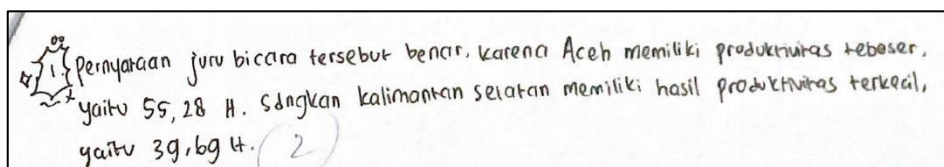 1. Pernyataan juru bicara tersebut benar, karena Aceh memiliki produktivitas tebeser,
yaitu 55,28 H. Sdngkan kalimantan selatan memiliki hasil produktivitas terkecil,
yaitu 39,69 H. 2